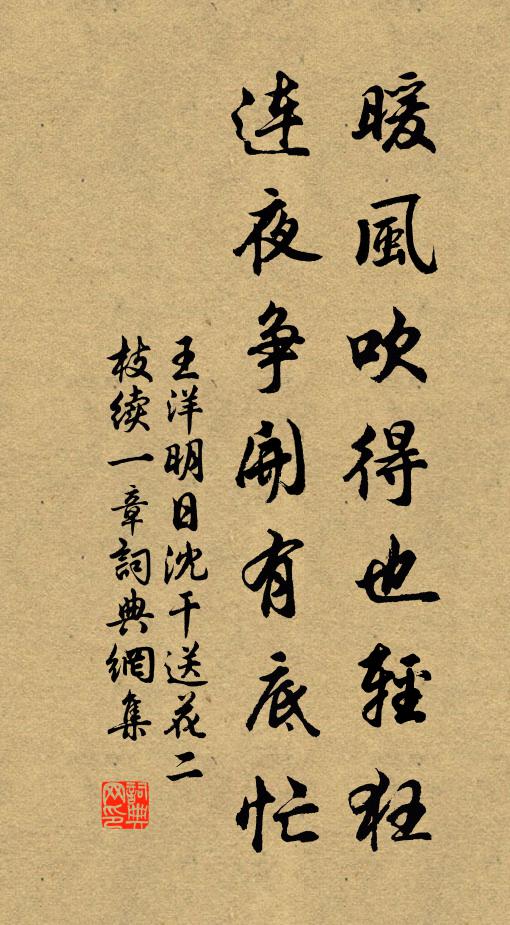 暖風吹得也輕狂
連夜争開有底忙
王洋明日沈干送花二
枝續一章詞典網集
詞典
网印